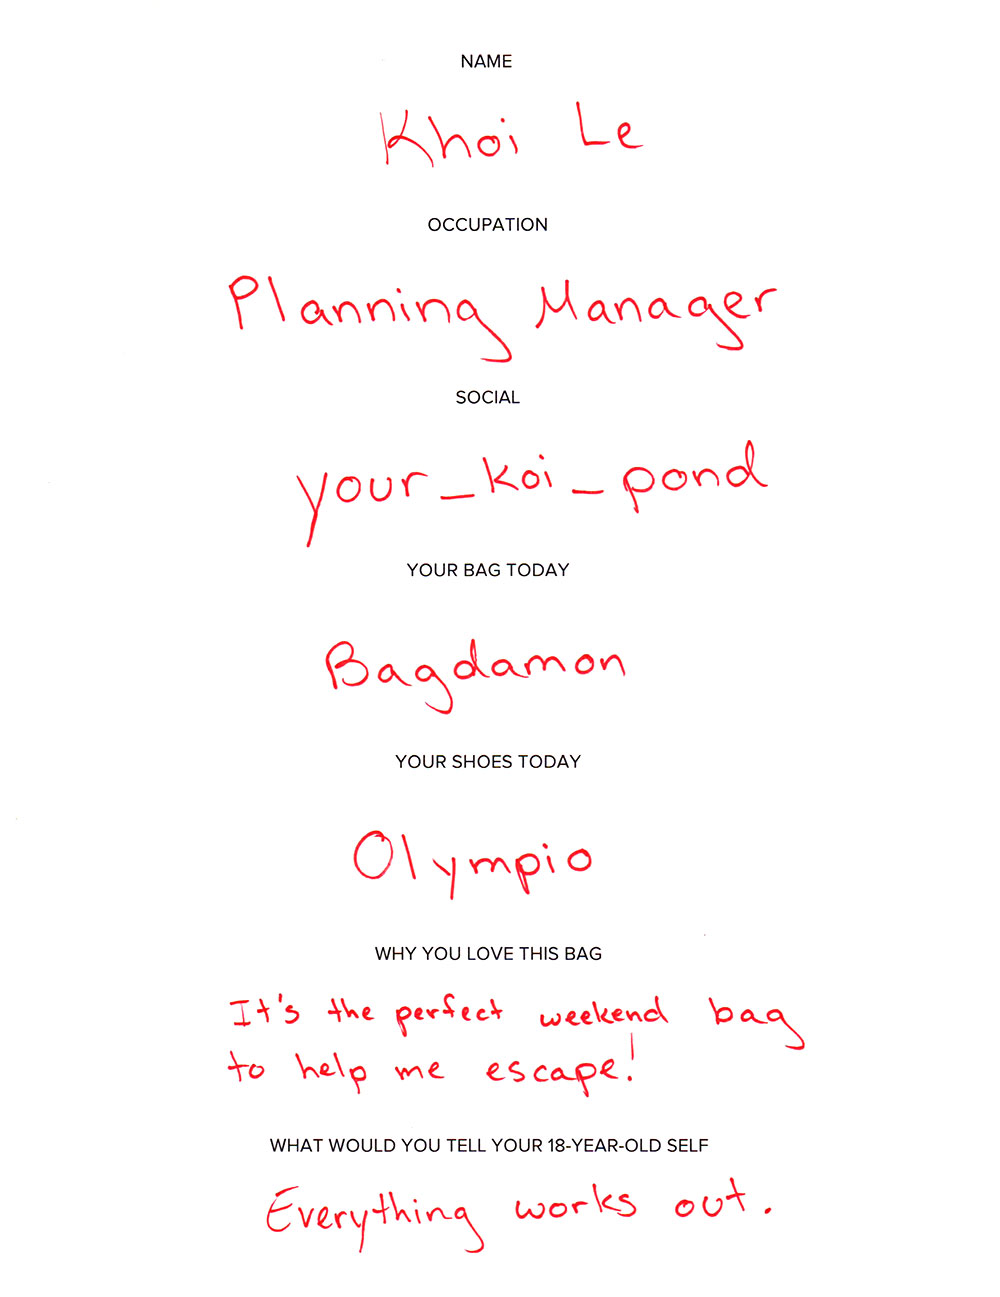 NAME
Khoi Le
OCCUPATION
Planning Manager
SOCIAL
your_koi_pond
YOUR BAG TODAY
Bagdamon
YOUR SHOES TODAY
Olympio
WHY YOU LOVE THIS BAG
It's the perfect weekend bag
to help me escape!
WHAT WOULD YOU TELL YOUR 18-YEAR-OLD SELF
Everything works out.